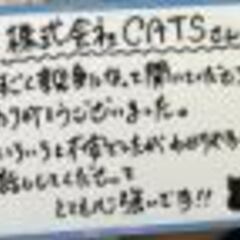 株式会社CATSさん
すごく親身になって聞いていただき
ありがとうございました。
いろいろと不安でしたがわかりやすく
話ししてくださって
とても心強いです!!